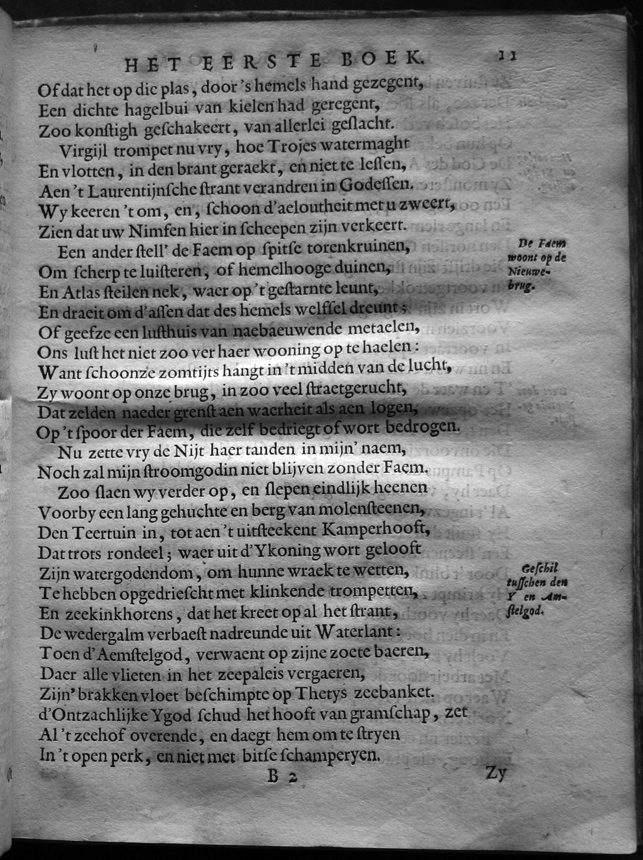 HET EERSTE BOEK. 11
Of dat het op die plas, door 's hemels hand gezegent,
Een dichte hagelbui van kielen had geregent,
Zoo konſtigh geſchakeert, van allerlei geſlacht.
Virgijl trompet nu vry, hoe Trojes watermaght
En vlotten, in den brant geraekt, en niet te leſſen,
Aen 't Laurentijnſche ſtrant verandren in Godeſſen.
Wy keeren 't om, en, ſchoon d'aeloutheit met u zweert,
Zien dat uw Nimfen hier in ſcheepen zijn verkeert.
Een ander ſtell' de Faem op ſpitſe torenkruinen,
Om ſcherp te luiſteren, of hemelhooge duinen,
En Atlas ſteilen nek, waer op 't geſtarnte leunt,
En draeit om d'aſſen dat des hemels welfſel dreunt;
Of geefze een luſthuis van naebaeuwende metaelen,
Ons luſt het niet zoo ver haer wooning op te haelen:
Want ſchoonze zomtijts hangt in 't midden van de lucht,
Zy woont op onze brug, in zoo veel ſtraetgerucht,
Dat zelden naeder grenſt aen waerheit als aen logen,
Op 't ſpoor der Faem, die zelf bedriegt of wort bedrogen.
Nu zette vry de Nijt haer tanden in mijn' naem,
Noch zal mijn ſtroomgodin niet blijven zonder Faem.
Zoo ſlaen wy verder op, en ſlepen eindlijk heenen
Voorby een lang gehuchte en berg van molenſteenen,
Den Teertuin in, tot aen 't uitſteekent Kamperhooft,
Dat trots rondeel; waer uit d'Ykoning wort gelooft
Zijn watergodendom, om hunne wraek te wetten,
Te hebben opgedrieſcht met klinkende trompetten,
En zeekinkhorens, dat het kreet op al het ſtrant,
De wedergalm verbaeſt nadreunde uit Waterlant:
Toen d'Aemſtelgod, verwaent op zijne zoete baeren,
Daer alle vlieten in het zeepaleis vergaeren,
Zijn' brakken vloet beſchimpte op Thetys zeebanket.
d'Ontzachlijke Ygod ſchud het hooft van gramſchap, zet
Al 't zeehof overende, en daegt hem om te ſtryen
In 't open perk, en niet met bitſe ſchamperyen.
B 2 Zy
De Faem
woont op de
Nieuwe-
brug.
Geſchil
tuſſchen den
Y en Am-
ſtelgod.